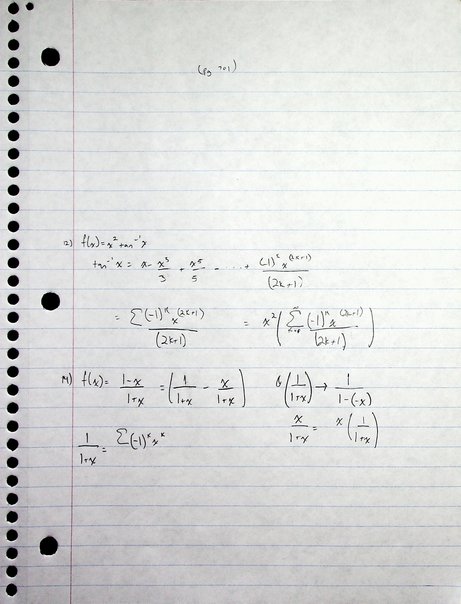 (Pg 701)
12) f(x) = x² tan⁻¹ x
tan⁻¹ x = x - x³/3 + x⁵/5 - ····· + (-1)^k x^(2k+1)/(2k+1)
= Σ(-1)^k x^(2k+1)/(2k+1) = x²(Σ_{k=0}^∞ (-1)^k x^(2k+1)/(2k+1))
14) f(x) = 1-x/1+x = (1/1+x - x/1+x) (1/1+x) → 1/1-(-x)
x/1+x = x(1/1+x)
1/1+x = Σ(-1)^k x^k